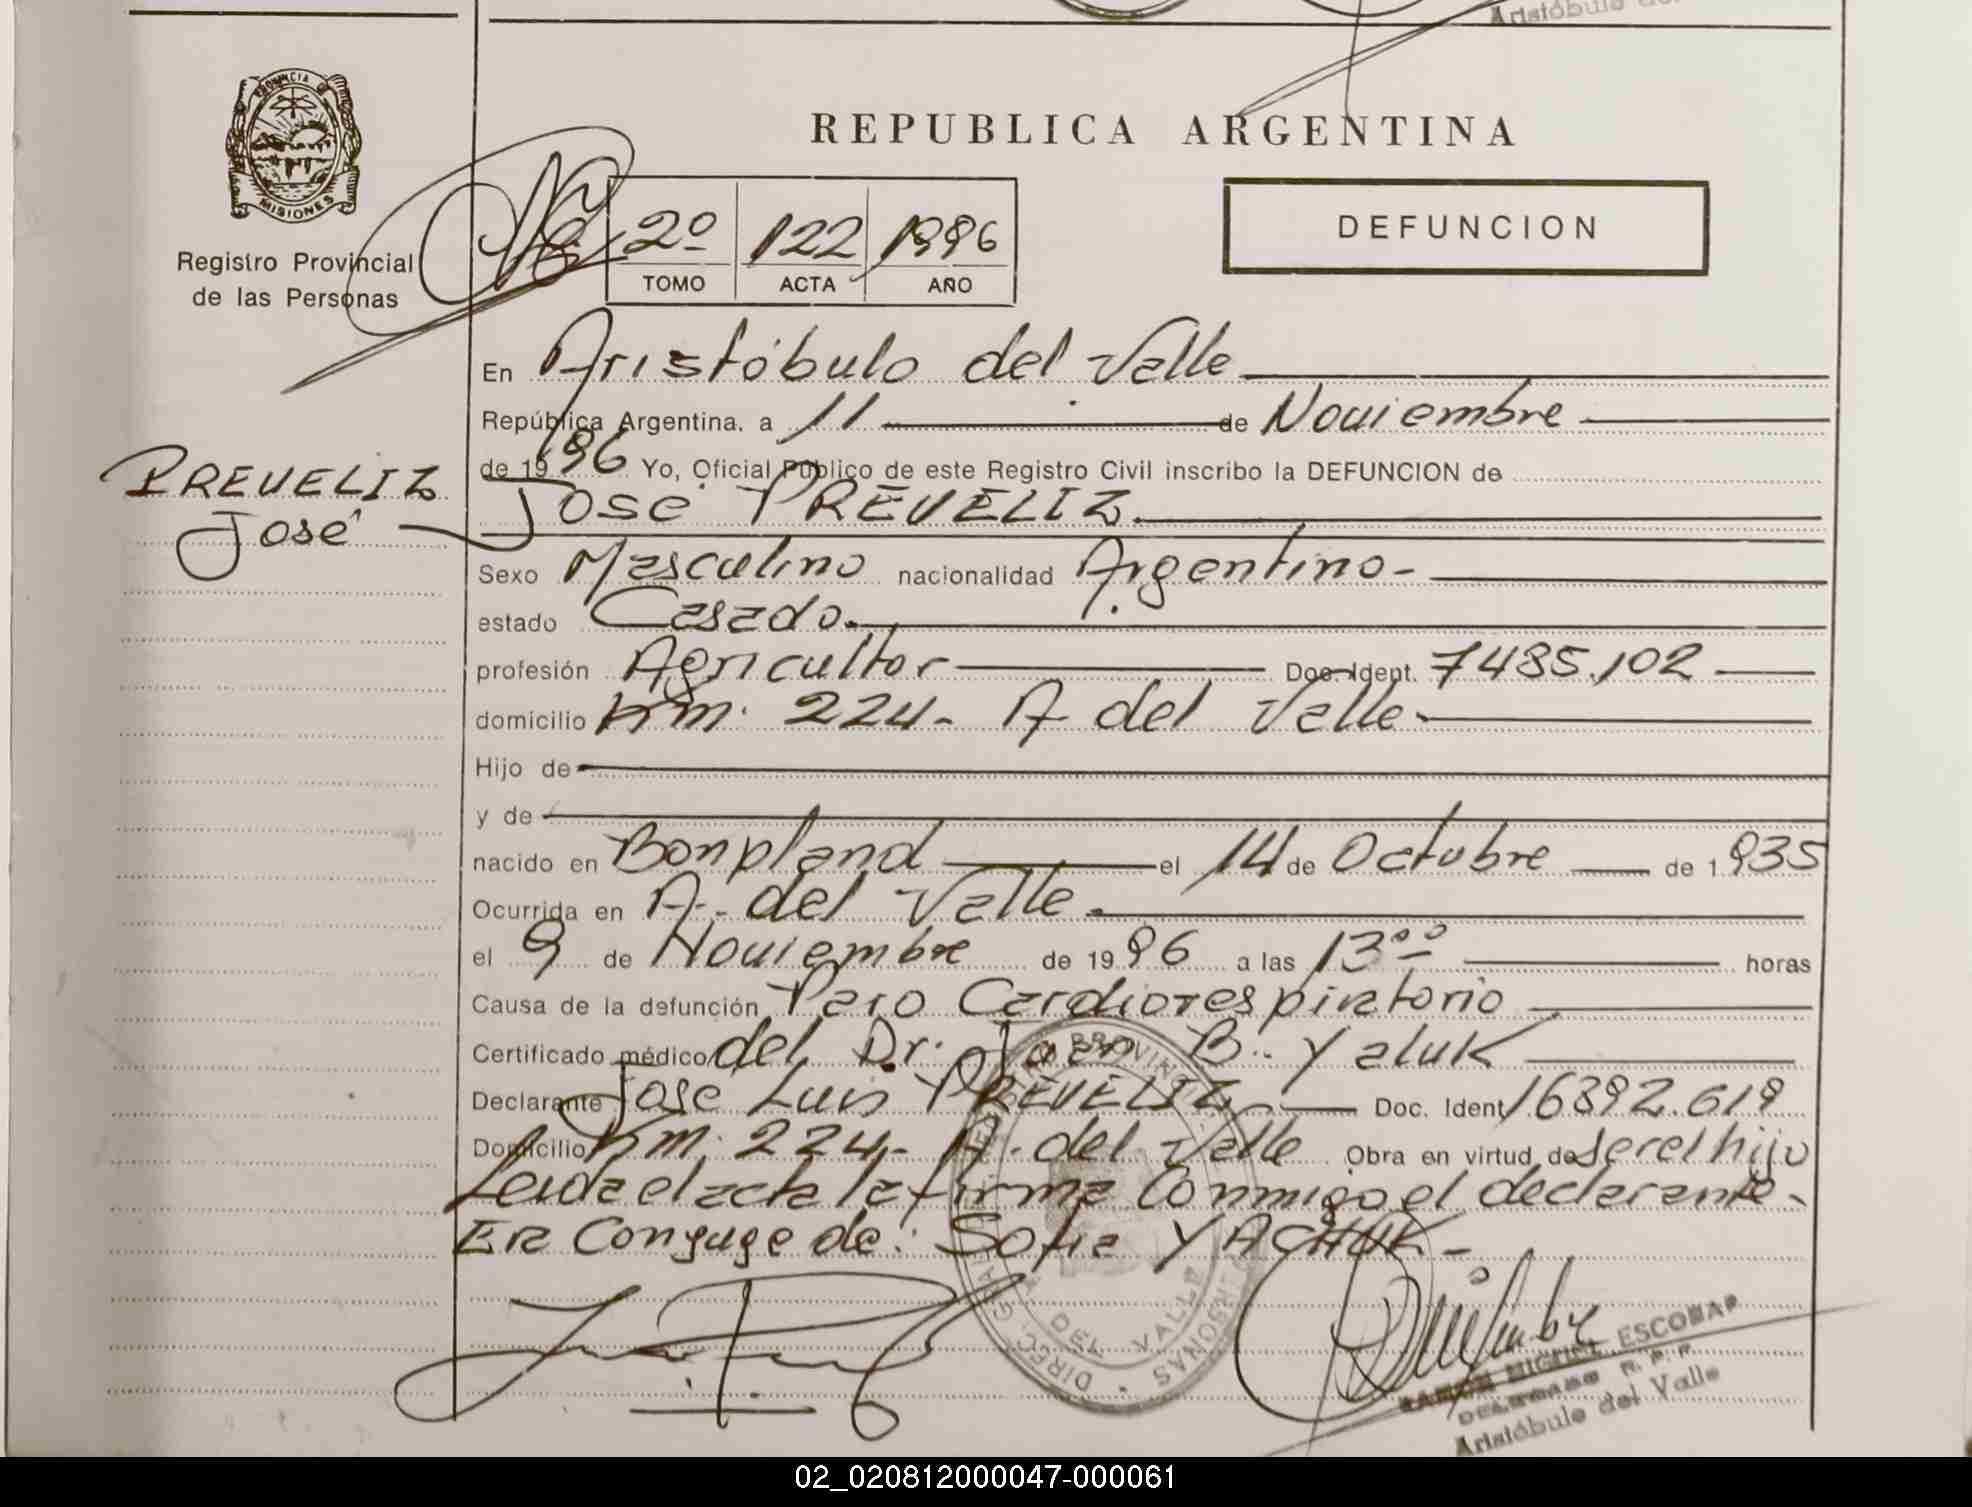 Aristóbulo del
PROVINCIA
MISIONES
Registro Provincial
de las Personas
REPUBLICA ARGENTINA
2º 122 1996
TOMO ACTA AÑO
DEFUNCION
PREVELIZ
José
En Aristóbulo del Valle
República Argentina. a 11 de Noviembre
de 1996 Yo, Oficial Público de este Registro Civil inscribo la DEFUNCION de
José PREVELIZ.
Sexo Masculino nacionalidad Argentino-
estado Casado.
profesión Agricultor Doc. Ident. 7485.102
domicilio Km. 224- A del Valle-
Hijo de
y de
nacido en Bonpland el 14 de Octubre de 1935
Ocurrida en A. del Valle.
el 9 de Noviembre de 1996 a las 13ºº horas
Causa de la defunción Paro Cardiorespiratorio
Certificado médico del Dr. Juan B. Yaluk
Declarante José Luis PREVELIZ Doc. Ident 16392.619
Domicilio Km. 224- A. del Valle Obra en virtud de ser el hijo
Leida el acta la firma Conmigo el declarante-
Era Conyuge de: Sofia YACHUK-
DEL VALLE
RAMON MIGUEL ESCOBAR
DELEGADO R. P. P.
Aristóbulo del Valle
02_020812000047-000061